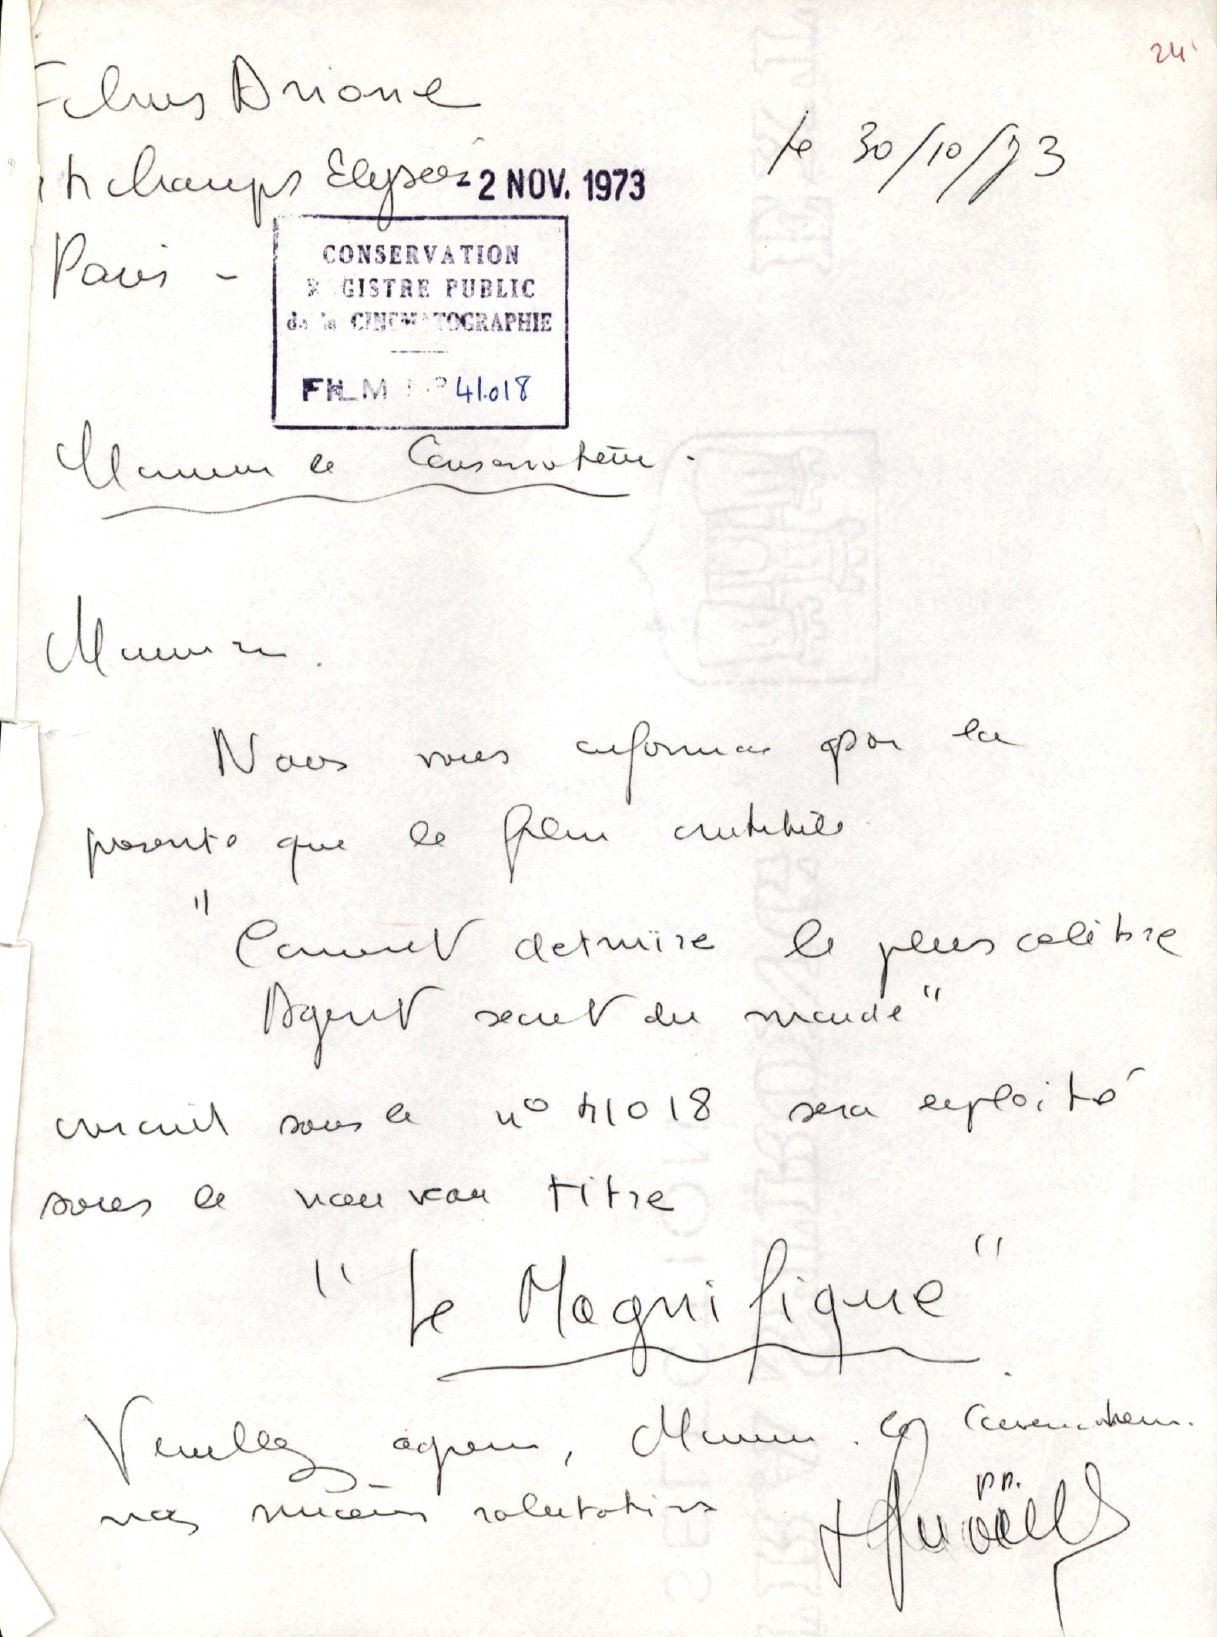 24
Films Ariane
le 30/10/73
44 Champs Elysées
- 2 NOV. 1973
Paris -
CONSERVATION
REGISTRE PUBLIC
de la CINEMATOGRAPHIE
FILM N° 41.018
Monsieur le Conservateur.
Monsieur.
Nous vous informons par la
présente que le film intitulé
" Comment detruire le plus célèbre
Agent secret du monde "
inscrit sous le n° 41018 sera exploité
sous le nouveau titre
" Le Magnifique "
Veuillez agréer, Monsieur le Conservateur.
nos sincères salutations
pp.